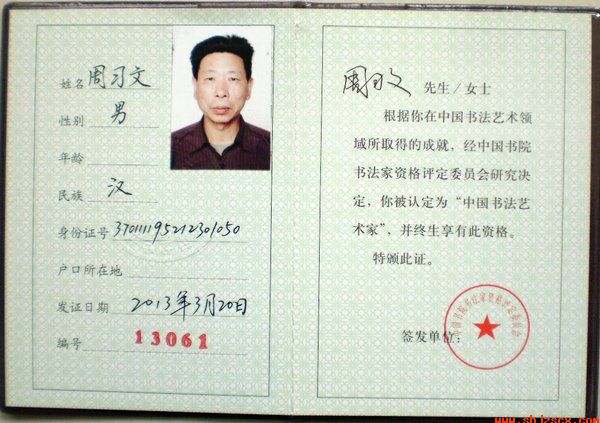 姓名 周习文
性别 男
年龄
民族 汉
身份证号 370111195212301050
户口所在地
发证日期 2013年3月20日
编号 13061
周习文 先生／女士
根据你在中国书法艺术领
域所取得的成就，经中国书院
书法家资格评定委员会研究决
定，你被认定为“中国书法艺
术家”，并终生享有此资格。
特颁此证。
签发单位：
中国书院书法家资格评定委员会